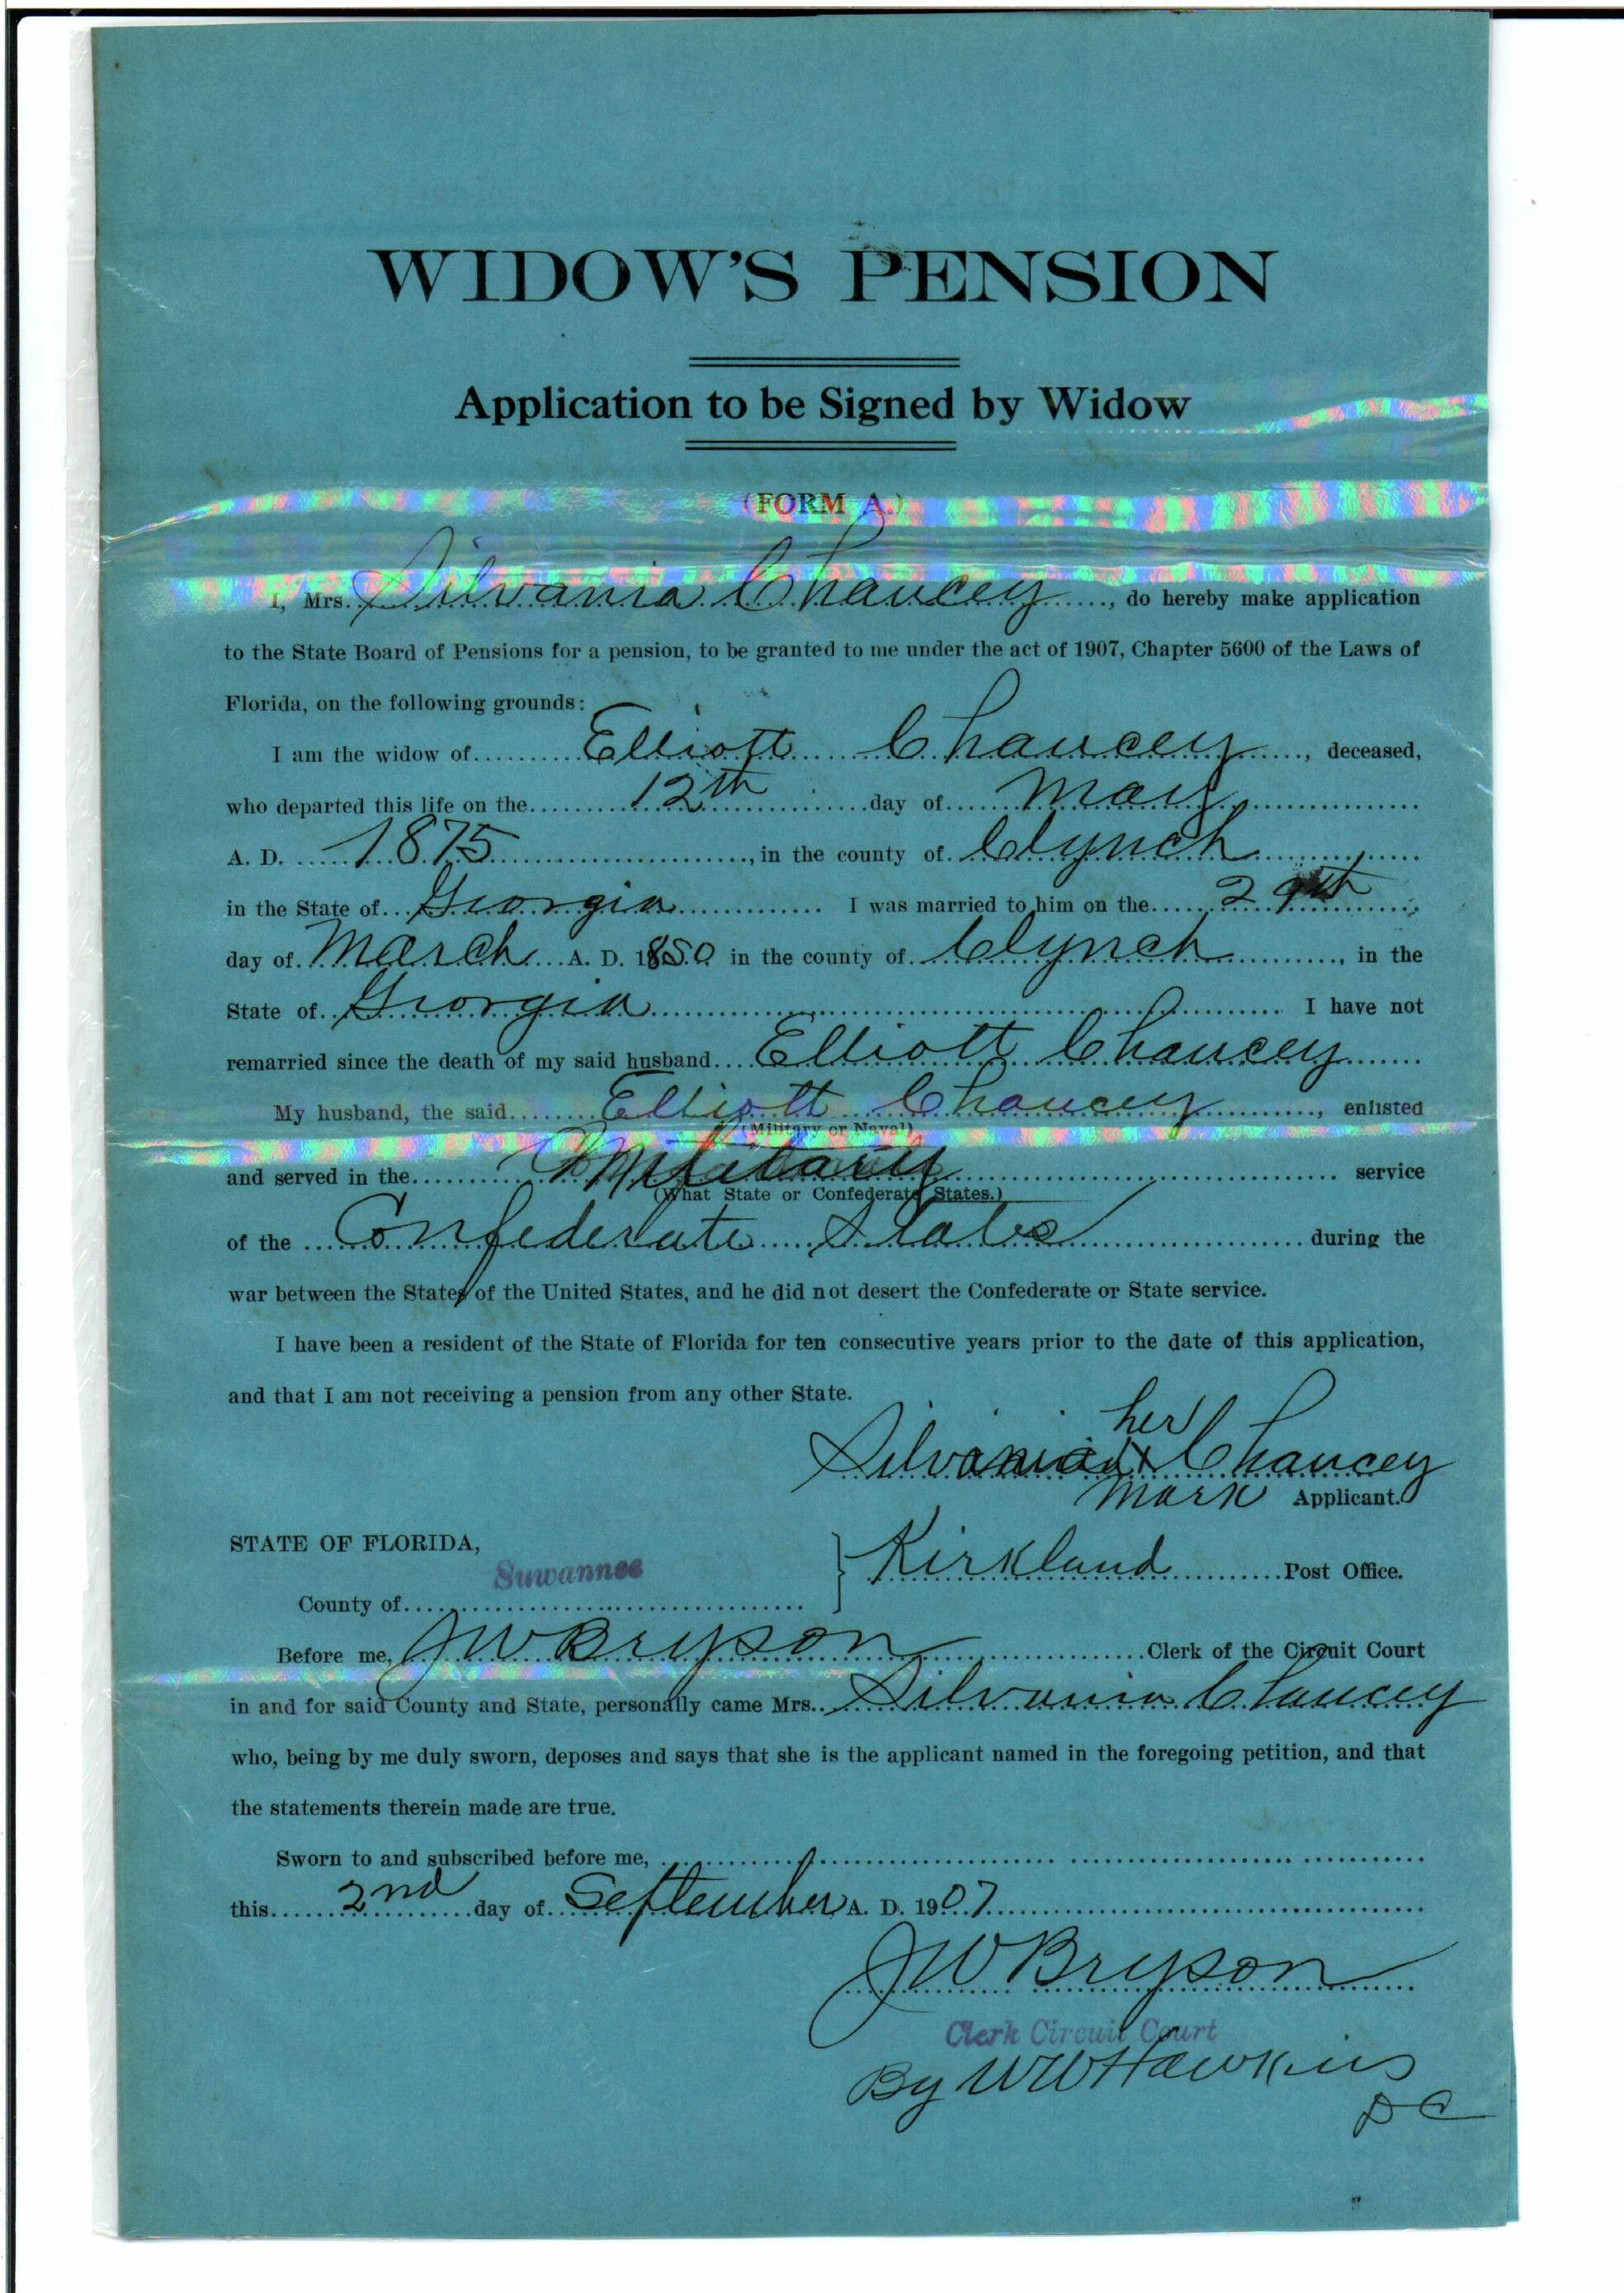 WIDOW'S PENSION
Application to be Signed by Widow
(FORM A.)
I, Mrs. Silvania Chancey, do hereby make application
to the State Board of Pensions for a pension, to be granted to me under the act of 1907, Chapter 5600 of the Laws of
Florida, on the following grounds:
I am the widow of Elliott Chancey, deceased,
who departed this life on the 12th day of May
A. D. 1875, in the county of Clynch
in the State of Georgia I was married to him on the 29th
day of March A. D. 1850 in the county of Clynch, in the
State of Georgia I have not
remarried since the death of my said husband Elliott Chancey
My husband, the said Elliott Chancey, enlisted
(Military or Naval)
and served in the Military service
(What State or Confederate States.)
of the Confederate States during the
war between the States of the United States, and he did not desert the Confederate or State service.
I have been a resident of the State of Florida for ten consecutive years prior to the date of this application,
and that I am not receiving a pension from any other State.
her
Silvania X Chancey
mark Applicant.
STATE OF FLORIDA,
Kirkland Post Office.
Suwannee
County of
Before me, J W Bryson Clerk of the Circuit Court
in and for said County and State, personally came Mrs. Silvania Chancey
who, being by me duly sworn, deposes and says that she is the applicant named in the foregoing petition, and that
the statements therein made are true.
Sworn to and subscribed before me,
this 2nd day of September A. D. 1907
J W Bryson
Clerk Circuit Court
By W W Hawkins
D C